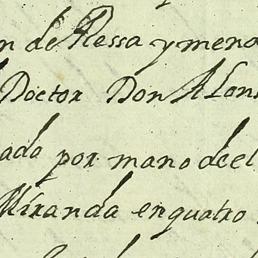 n de Plessa y mena
Doctor Don Alons
ada por mano de el
Miranda enquatro